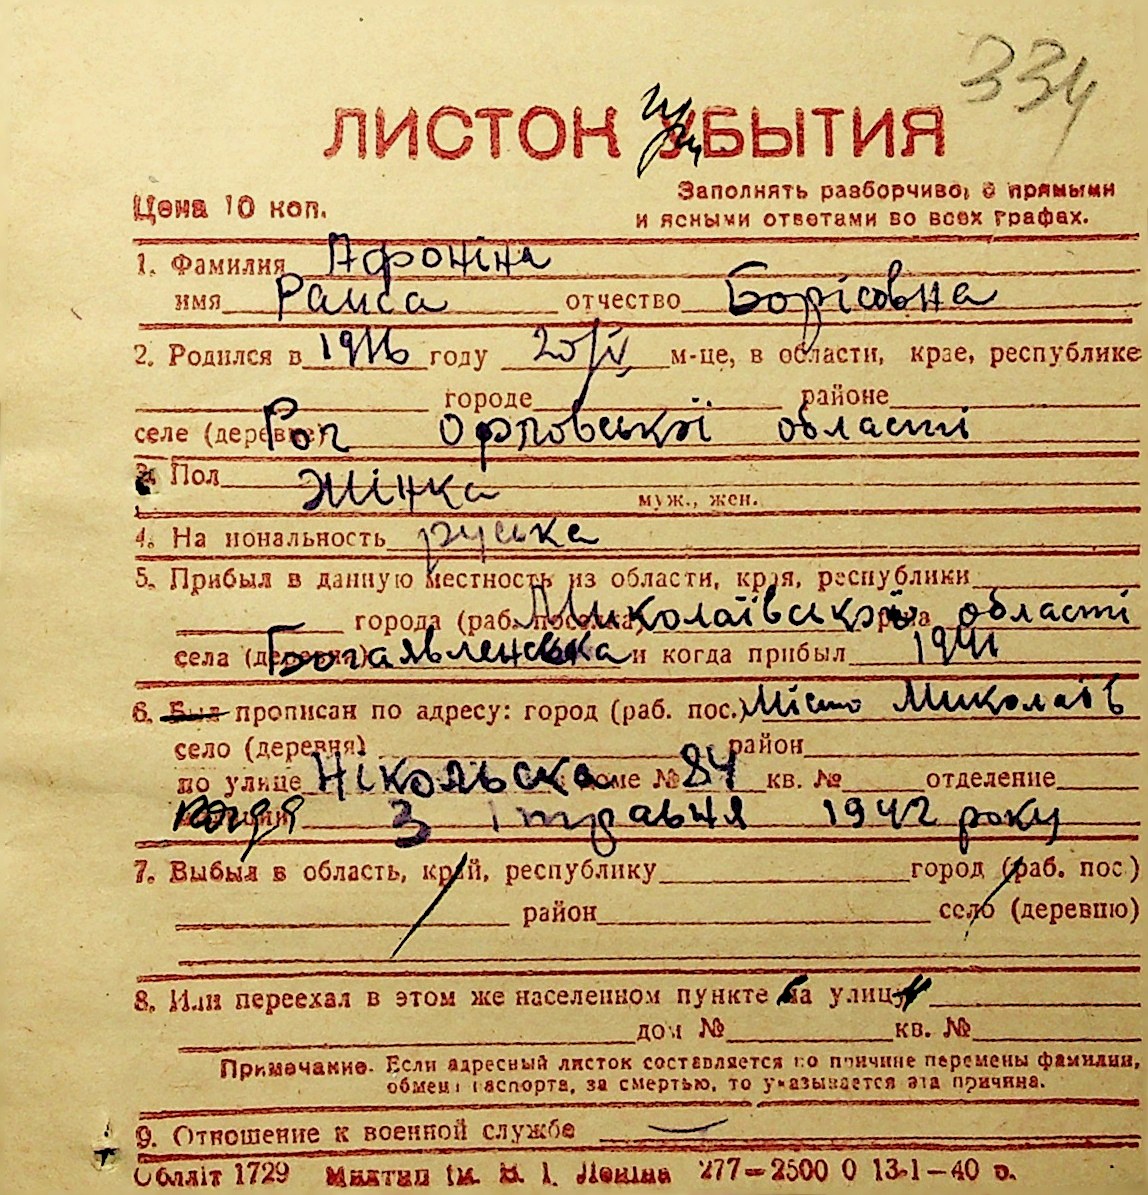 334
ЛИСТОК УБЫТИЯ
Цена 10 коп.
Заполнять разборчиво, с прямыми
и ясными ответами во всех графах.
1. Фамилия Афоніна
имя Раиса отчество Борісовна
2. Родился в 1916 году 20/IV м-це, в области, крае, республике
городе районе
селе (деревне) Орловської області
3. Пол Жінка муж., жен.
4. Национальность руська
5. Прибыл в данную местность из области, края, республики
города (раб. поселка) Миколаївської області
села (деревни) Богаявленська и когда прибыл 1941
6. Был прописан по адресу: город (раб. пос.) Місто Миколаїв
село (деревня) район
по улице Нікольска доме № 84 кв. № отделение
З 1 травня 1942 року
7. Выбыл в область, край, республику город (раб. пос.)
район село (деревню)
8. Или переехал в этом же населенном пункте на улицу
дом № кв. №
Примечание. Если адресный листок составляется по причине перемены фамилии,
обмена паспорта, за смертью, то указывается эта причина.
9. Отношение к военной службе
Обліт 1729 ім. В. І. Леніна 277—2500 0 13-1—40 р.